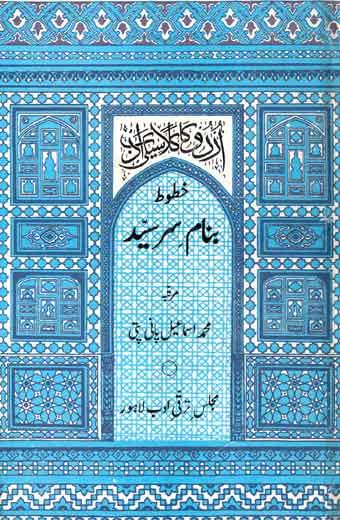 اردو کا کلاسیکی ادب
خطوط
بنام سرسیّد
مرتبہ
محمد اسماعیل پانی پتی
مجلس ترقیِ ادب لاہور